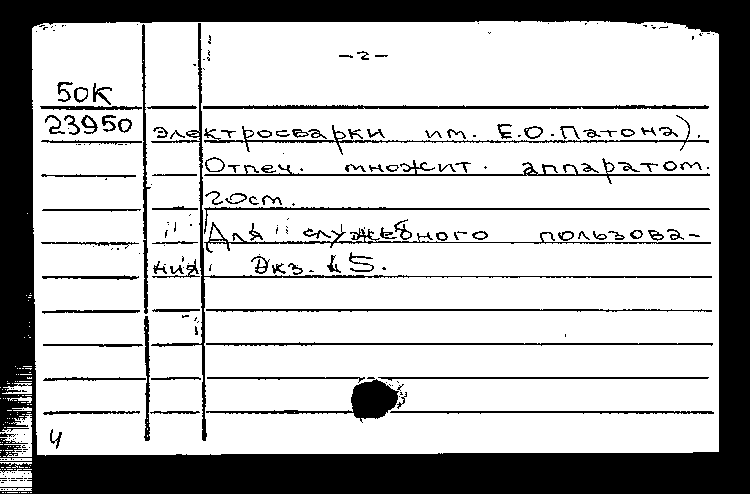 -2-
50К
23950 электросварки им. Е.О.Патона).
Отпеч. множит. аппаратом.
20см.
Для служебного пользова-
ния. Экз. 15.
4